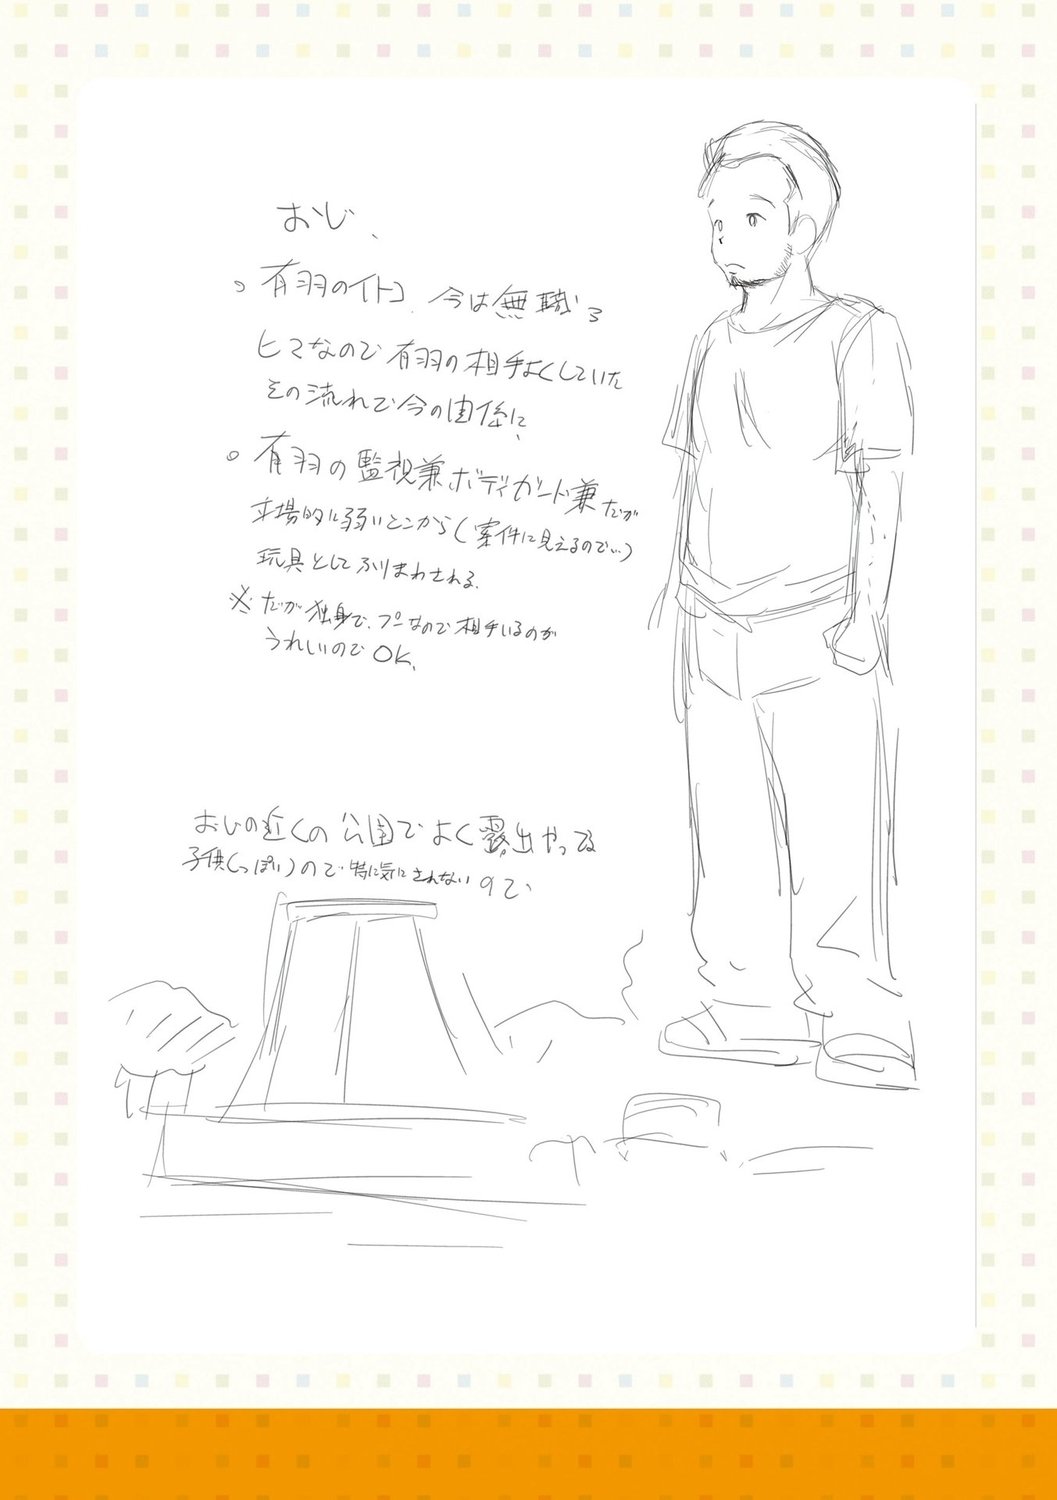 おじ、
。有羽のイトコ、今は無職ろ
ヒマなので有羽の相手よくしていた
その流れで今の関係に、
。有羽の監視兼ボディガード兼だが
立場的に弱いとこから(案件に見えるので…)
玩具としてふりまわされる。
※だが独身で、プーなので相手いるのが
うれしいのでOK、
おじの近くの公園でよく露出やってる
子供(っぽい)ので特に気にされないので、